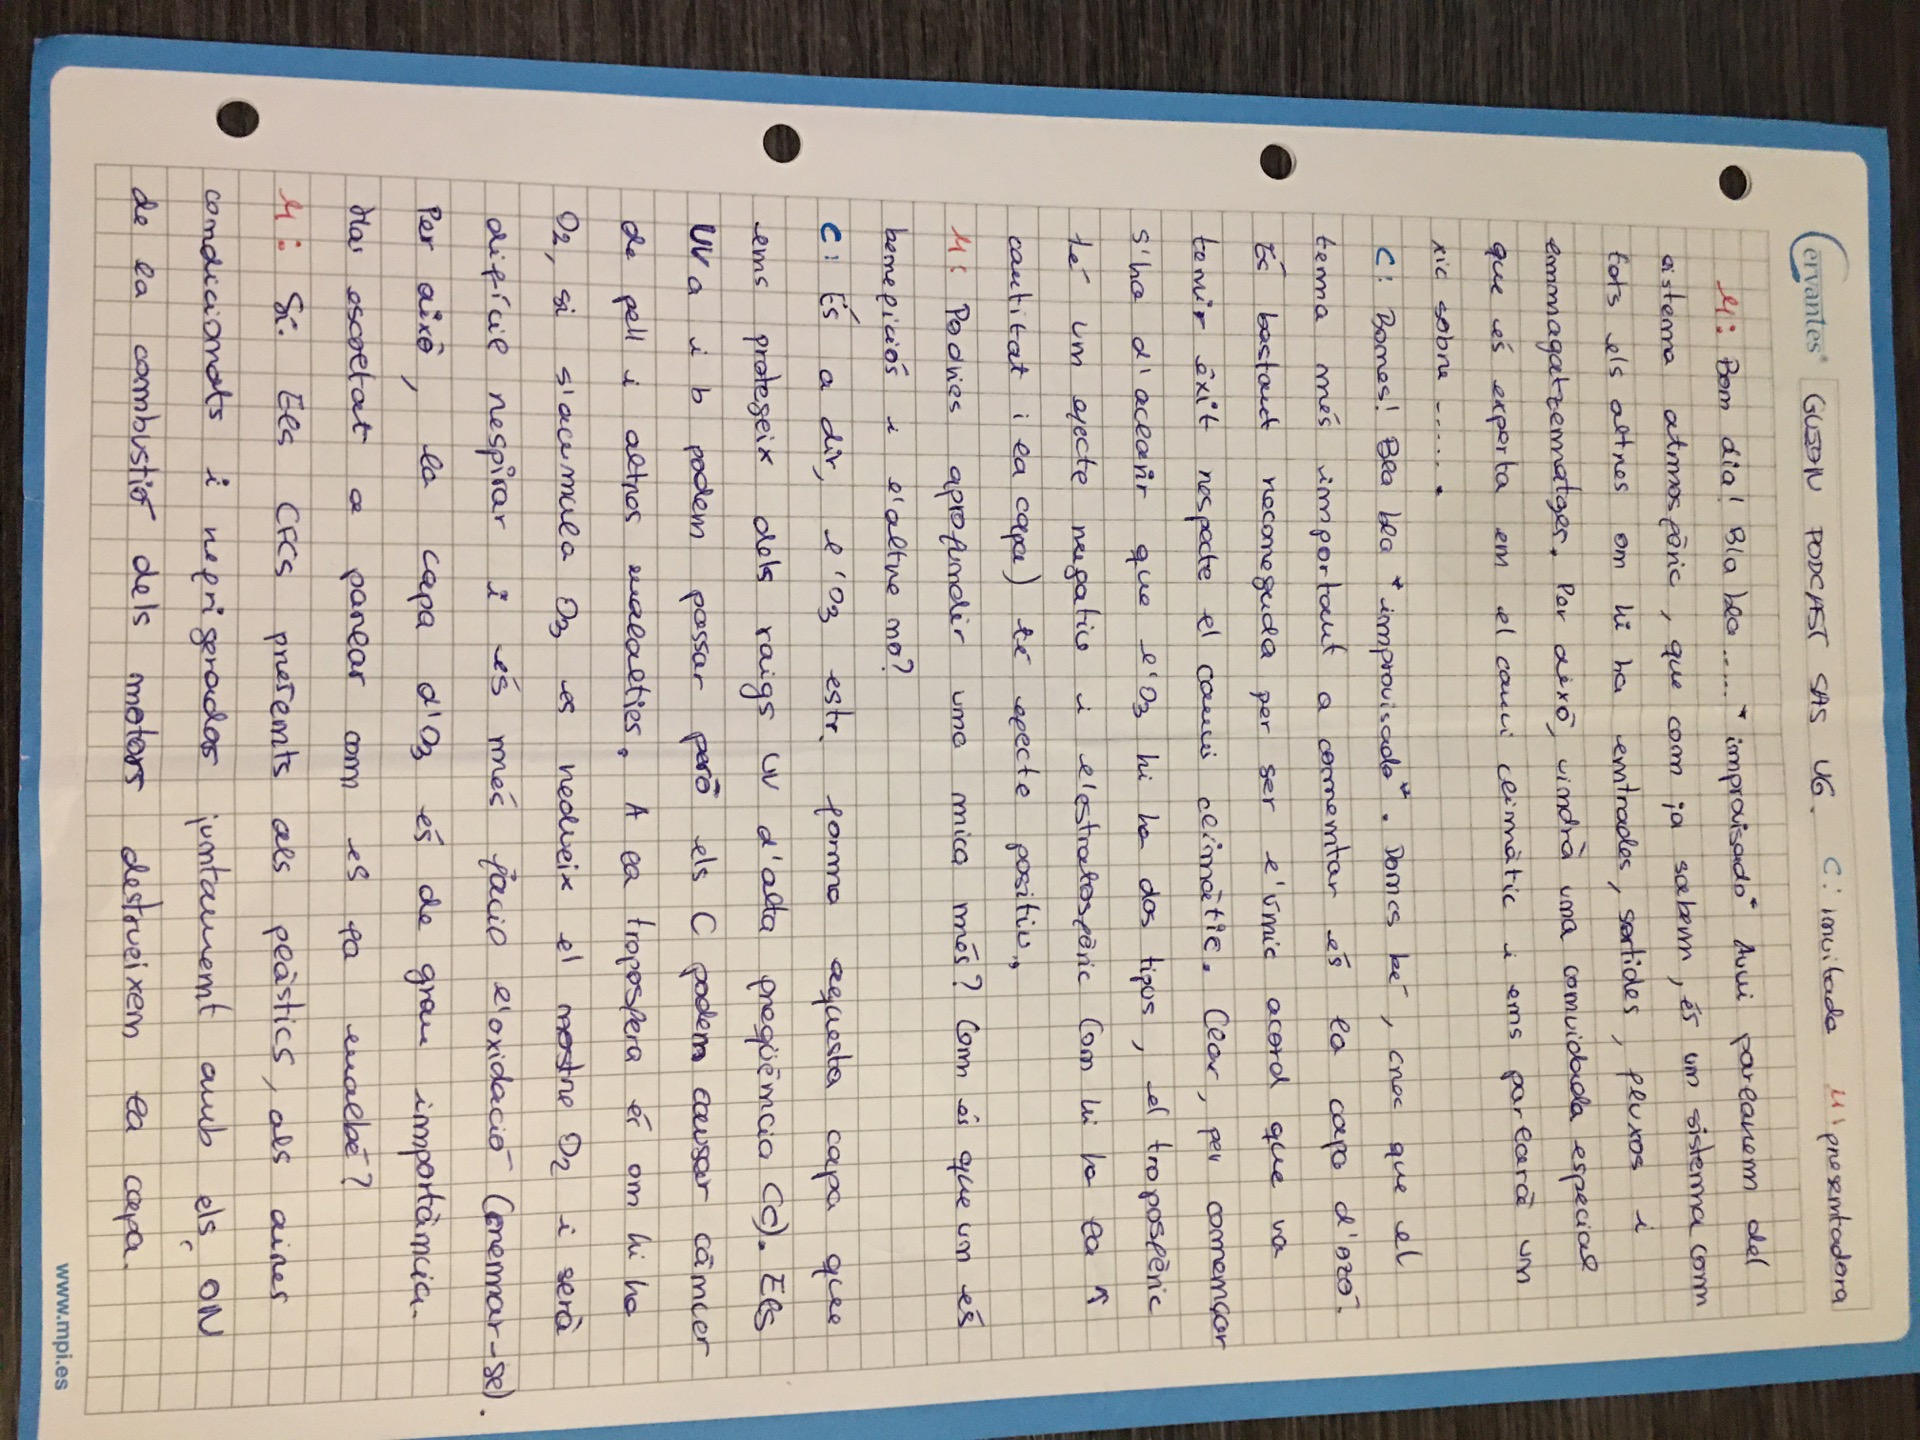 Cervantes® GUIÓN PODCAST SAS UG. C: invitada M: presentadora
M: Bon dia! Bla bla ...... *improvisado* Avui parlarem del
sistema atmosfèric, que com ja sabem, és un sistema com
tots els altres on hi ha entrades, sortides, fluxos i
emmagatzematges. Per això, vindrà una convidada especial
que és experta en el canvi climàtic i ens parlarà un
xic sobre ......
C: Bones! Bla bla *improvisado*. Doncs bé, crec que el
tema més important a comentar és la capa d'ozó.
És bastant reconeguda per ser l'únic acord que va
tenir èxit respecte el canvi climàtic. Clar, per començar
s'ha d'aclarir que l'O3 hi ha dos tipus, el troposfèric
té un efecte negatiu i l'estratosfèric (on hi ha la ↑
cantitat i la capa) té efecte positiu.
M: Podries aprofundir una mica més? Com és que un és
beneficiós i l'altre no?
C: És a dir, l'O3 estr. forma aquesta capa que
ens protegeix dels raigs UV d'alta freqüència (c). Els
UV a i b podem passar però els C podem causar càncer
de pell i altres malalties. A la troposfera és on hi ha
O2, si s'acumula O3 es redueix el nostre O2 i serà
difícil respirar i és més fàcil l'oxidació (cremar-se).
Per això, la capa d'O3 és de gran importància.
Has escoltat a parlar com es fa malbé?
M: Sí. Els CFCs presents als plàstics, als aires
condicionats i refrigerados juntament amb els ON
de la combustió dels motors destrueixem la capa.
www.mpi.es